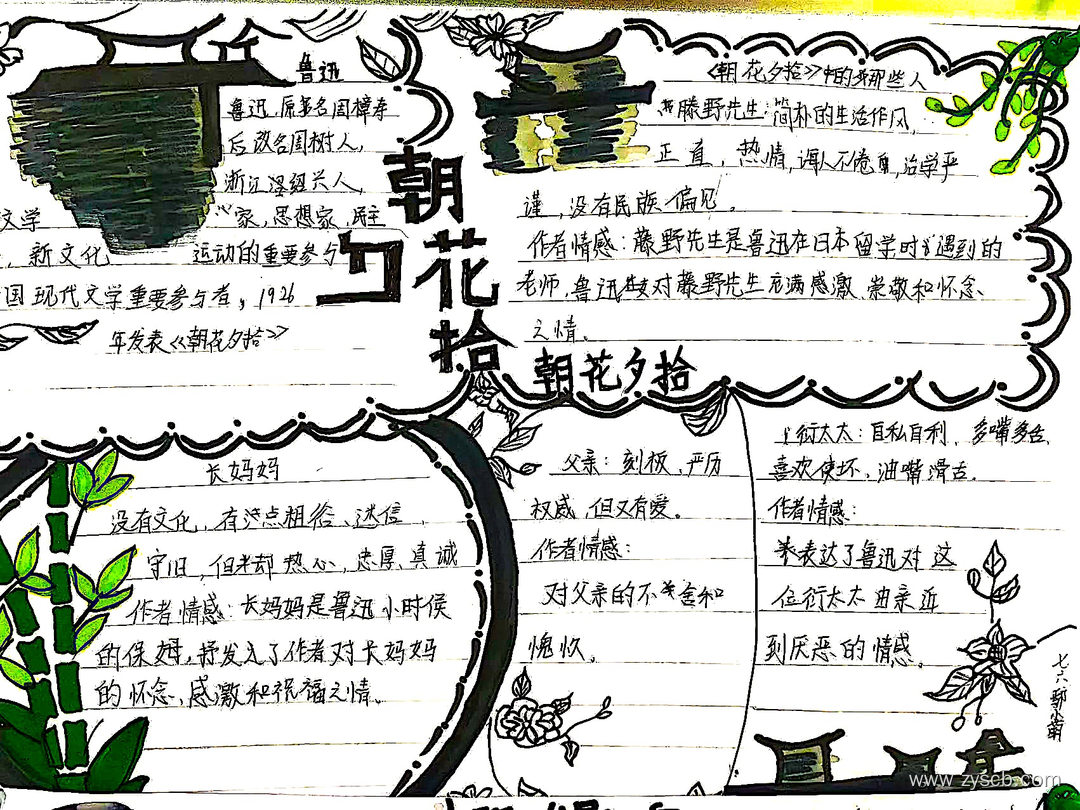 鲁迅
鲁迅，原名周樟寿
后改名周树人，
浙江绍兴人，
文学家，思想家，民主
新文化运动的重要参与
国现代文学重要参与者，1926
年发表《朝花夕拾》
朝花夕拾
《朝花夕拾》中的那些人
藤野先生：简朴的生活作风，
正直，热情，诲人不倦，治学严
谨，没有民族偏见。
作者情感：藤野先生是鲁迅在日本留学时遇到的
老师，鲁迅对藤野先生充满感激、崇敬和怀念
之情。
朝花夕拾
长妈妈
没有文化，有点粗俗、迷信，
守旧，但却热心，忠厚、真诚
作者情感：长妈妈是鲁迅小时侯
的保姆，抒发了作者对长妈妈
的怀念、感激和祝福之情。
父亲：刻板、严厉
权威，但又有爱。
作者情感：
对父亲的不舍和
愧疚。
衍太太：自私自利、多嘴多舌
喜欢使坏，油嘴滑舌。
作者情感：
表达了鲁迅对这
位衍太太由亲近
到厌恶的情感。
七六
www.zyscb.com